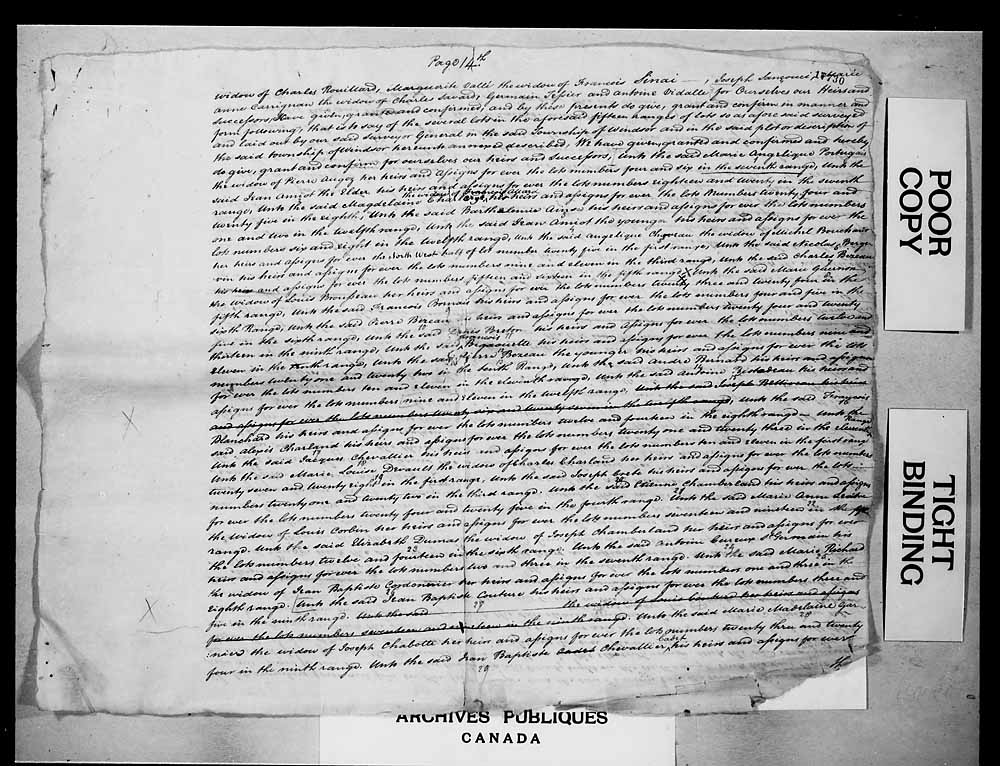 Page 14th
17730
widow of Charles Rouillard, Marguerite Vallé the widow of Francois Sinai — , Joseph Sançouci, Marie
anne Carrignan the widow of Charles Savard, Germain Tessier and Antoine Vidalle for Ourselves our Heirs and
successors, Have given, granted and confirmed, and by these presents do give, grant and confirm in manner and
form following, that is to say of the several lots in the aforesaid fifteen ranges of lots so as afore said surveyed
and laid out by our said Surveyor General in the said Township of Windsor and in the said plot or description of
the said township of Windsor hereunto annexed described. We have given, granted and confirmed and hereby
do give, grant and confirm for ourselves our heirs and successors, Unto the said Marie Angelique Portugais
the widow of Pierre Auger her heirs and assigns for ever the lots numbers four and six in the seventh range, Unto the
said Jean Amiot the Elder his heirs and assigns for ever the lots numbers eighteen and twenty in the seventh
the widow of Francois Allard
range, Unto the said Magdelaine her heirs and assigns for ever The lots Numbers twenty four and
twenty five in the eighth, Unto the said Barthelemie his heirs and assigns for ever the lots numbers
one and two in the twelfth range, Unto the said Jean Amiot the younger his heirs and assigns for ever the
lots numbers six and eight in the twelfth range, Unto the said Angelique the widow of Michel Bouchard
her heirs and assigns for ever the North West half of lot number twenty five in the first range, Unto the said Nicolas
his heirs and assigns for ever the lots numbers nine and eleven in the third range, Unto the said Charles Bezeau
his heirs and assigns for ever the lot numbers fifteen and sixteen in the fifth range, Unto the said Marie
the widow of Louis her heirs and assigns for ever the lots numbers twenty three and twenty four in the
fifth range, Unto the said Francis his heirs and assigns for ever the lots numbers four and five in the
sixth Range, Unto the said Pierre Bezeau heirs and assigns for ever the lots numbers twenty four and twenty
five in the sixth range, Unto the said Louis Breton his heirs and assigns for ever the lots numbers twelve and
Francois
thirteen in the ninth range, Unto the said Bigaouette his heirs and assigns for ever the lots numbers nine and
eleven in the tenth range, Unto the said Pierre Bezeau the younger his heirs and assigns for ever the lots
numbers twenty one and twenty two in the tenth Range, Unto the said André Bernard his heirs and assigns
for ever the lots numbers ten and eleven in the eleventh range, Unto the said Antoine his heirs and
assigns for ever the lots numbers nine and eleven in the twelfth range, Unto the said Joseph Pelletreau his heirs
and assigns for ever the lots numbers twenty six and twenty seven in the twelfth range, Unto the said François
Blanchard his heirs and assigns for ever the lots numbers twelve and fourteen in the eighth range — Unto the
Range
said Alexis Charland his heirs and assigns for ever the lots numbers twenty one and twenty three in the eleventh
Unto the said Jacques Chevallier his heirs and assigns for ever the lots numbers ten and eleven in the first range
Unto the said Marie Louise the widow of Charles Charland her heirs and assigns for ever the lots numbers
twenty seven and twenty eight in the first range. Unto the said Joseph his heirs and assigns for ever the lots
numbers twenty one and twenty two in the third range. Unto the said Etienne Chamberland his heirs and assigns
for ever the lots numbers twenty four and twenty five in the fourth range. Unto the said Marie Anne
the widow of Louis Corbin her heirs and assigns for ever the lots numbers seventeen and nineteen in the
range. Unto the said Elizabeth Dumas the widow of Joseph Chamberland her heirs and assigns for ever
the lots numbers twelve and fourteen in the sixth range. Unto the said Antoine Cureux St Germain his
heirs and assigns for ever the lots numbers two and three in the seventh range. Unto the said Marie Richard
the widow of Jean Baptiste Cordonnier her heirs and assigns for ever the lots numbers one and three in the
Eighth range. Unto the said Jean Baptiste Couture his heirs and assigns for ever the lots numbers three and
five in the ninth range. Unto the said the widow of Louis Couture her heirs and assigns
for ever the lots numbers seventeen and nineteen in the ninth range. Unto the said Marie Madelaine Gar-
nier the widow of Joseph Chabotte her heirs and assigns for ever the lots numbers twenty three and twenty
Cadet
four in the ninth range. Unto the said Jean Baptiste Cadet Chevallier, his heirs and assigns for ever
29
the
POOR
COPY
TIGHT
BINDING
ARCHIVES PUBLIQUES
CANADA